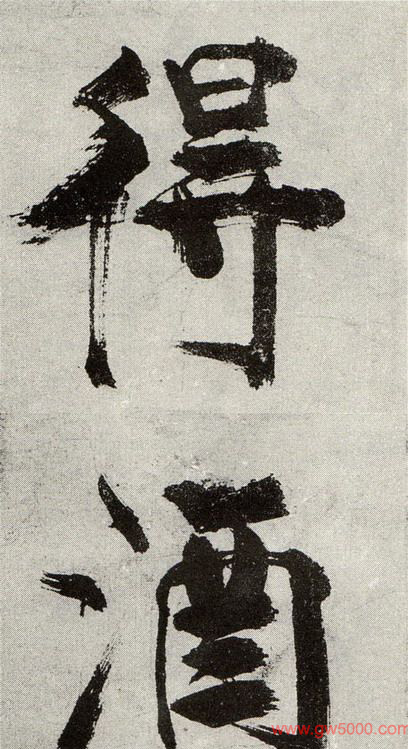 得
酒
www.gw5000.com